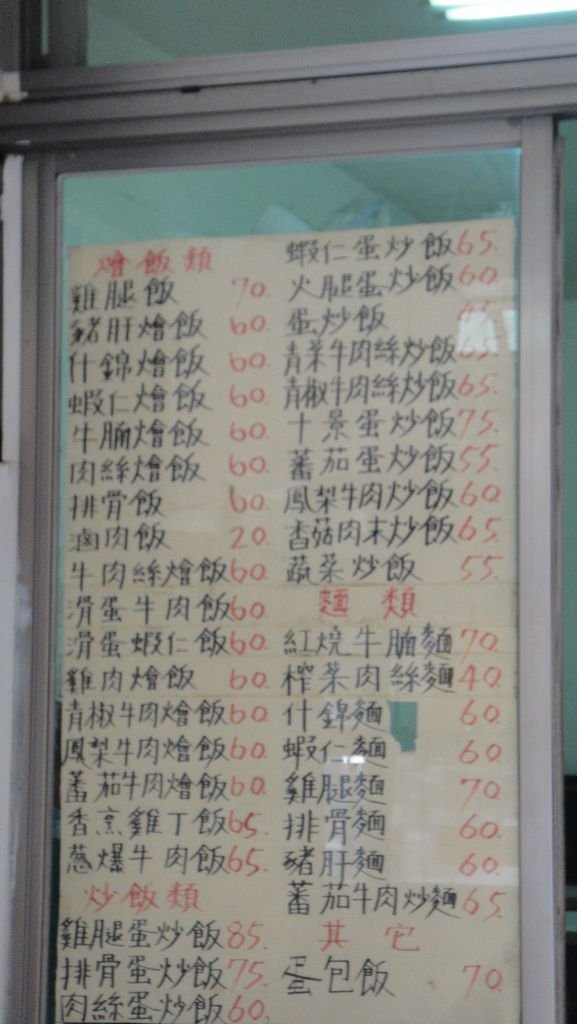 燴飯類
雞腿飯 70.
豬肝燴飯 60.
什錦燴飯 60.
蝦仁燴飯 60.
牛腩燴飯 60.
肉絲燴飯 60.
排骨飯 60.
滷肉飯 20.
牛肉絲燴飯 60.
滑蛋牛肉飯 60.
滑蛋蝦仁飯 60.
雞肉燴飯 60.
青椒牛肉燴飯 60.
鳳梨牛肉燴飯 60.
蕃茄牛肉燴飯 60.
香烹雞丁飯 65.
蔥爆牛肉飯 65.
炒飯類
雞腿蛋炒飯 85.
排骨蛋炒飯 75.
肉絲蛋炒飯 60.
蝦仁蛋炒飯 65.
火腿蛋炒飯 60.
蛋炒飯
青菜牛肉絲炒飯 65.
青椒牛肉絲炒飯 65.
十景蛋炒飯 75.
蕃茄蛋炒飯 55.
鳳梨牛肉炒飯 60.
香菇肉末炒飯 65.
蔬菜炒飯 55.
麵類
紅燒牛腩麵 70.
榨菜肉絲麵 40.
什錦麵 60.
蝦仁麵 60.
雞腿麵 70.
排骨麵 60.
豬肝麵 60.
蕃茄牛肉炒麵 65.
其它
蛋包飯 70.